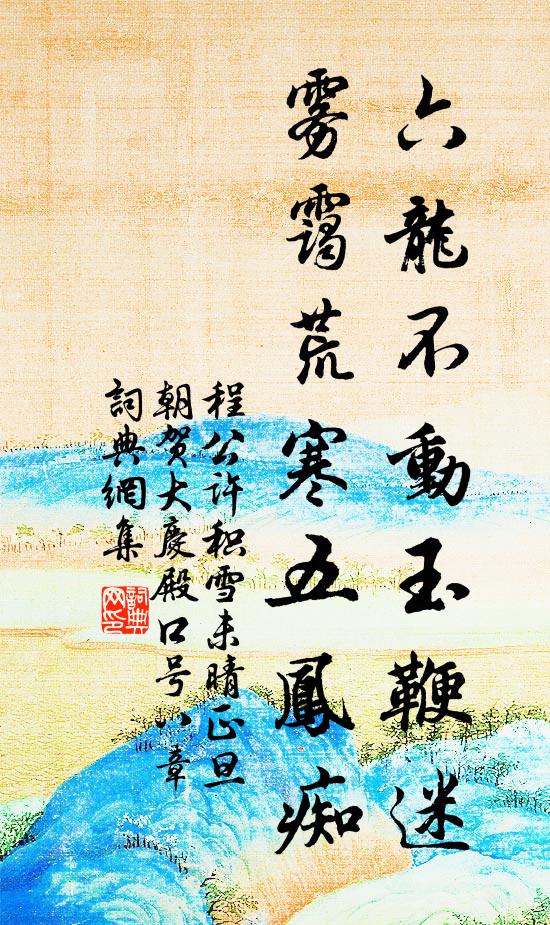 六龍不動玉鞭迷
雾靄荒寒五鳳痴
程公许积雪未晴正旦
朝贺大慶殿口号八章
詞典網集
詞典
网印